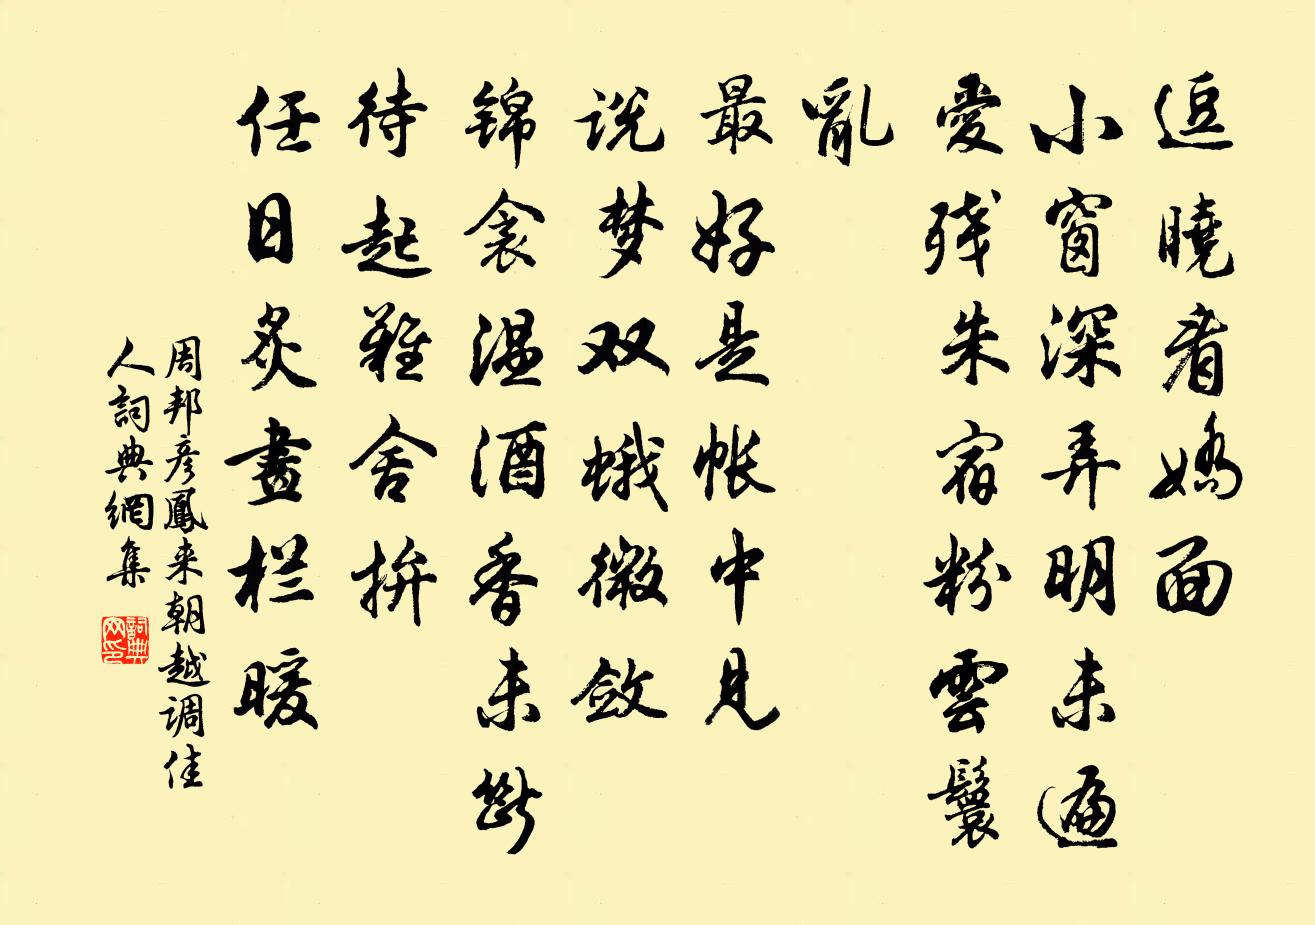 逗曉看嬌面
小窗深弄明未遍
愛残朱宿粉雲鬟
亂
最好是帐中見
说梦双蛾微敛
锦衾温酒香未斷
待起難舍拚
任日炙畫栏暖
周邦彦鳳来朝越调佳
人詞典網集
詞典网印